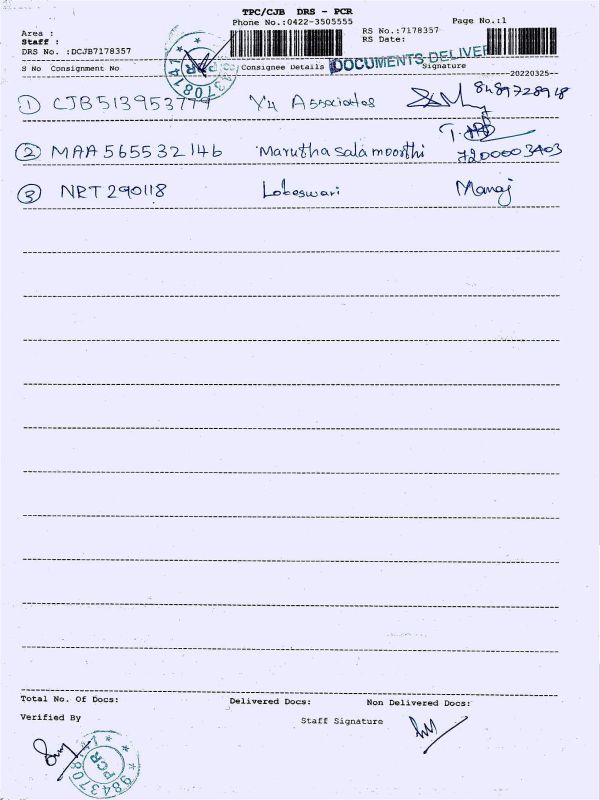 TPC/CJB DRS - PCR
Phone No.:0422-3505555 Page No.:1
Area : RS No.:7178357
Staff : RS Date:
DRS No. :DCJB7178357
DOCUMENTS DELIVER
S No Consignment No Consignee Details Signature
--20220325--
① CJB513953777 Y4 Associates 8489728948
② MAA 565532146 Marutha sala moorthi 7200003403
③ NRT 290118 Lokeswari Manoj
Total No. Of Docs: Delivered Docs: Non Delivered Docs:
Verified By Staff Signature
PCR